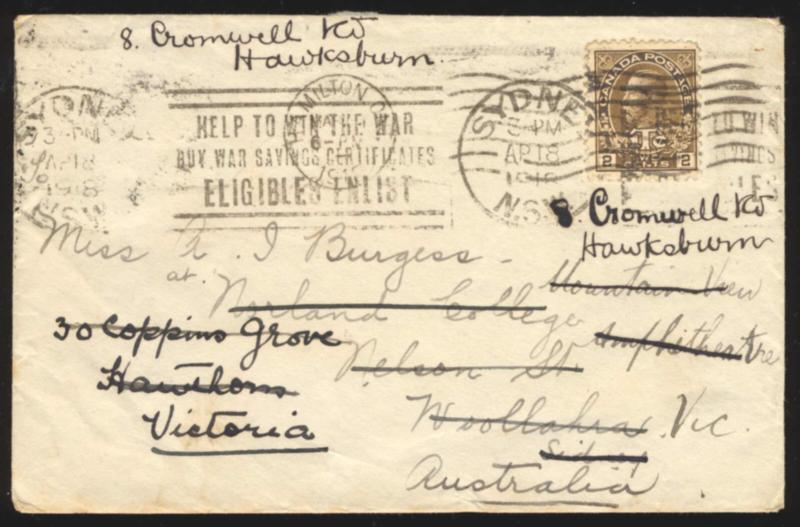 8. Cromwell Rd
Hawksburn.
SYDNEY
3-PM
AP 18
1918
NSW
HAMILTON
HELP TO WIN THE WAR
BUY WAR SAVINGS CERTIFICATES
ELIGIBLES ENLIST
SYDNEY
3-PM
AP 18
1918
NSW
CANADA POSTAGE
2 2
TO WIN
8. Cromwell Rd
Hawksburn
Miss A. I Burgess -
at.
Norland College
Mountain View
Amphitheatre
30 Coppins Grove
Hawthorn
Victoria
Nelson St
Woollahra, Vic.
Sidney
Australia